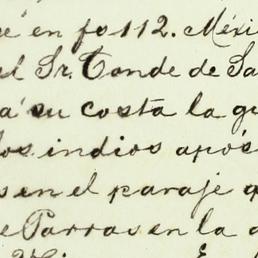 en fo 112. Méxi
el Sr. Conde de Sa
a su costa la gu
los indios após
s en el paraje q
e Parras en la